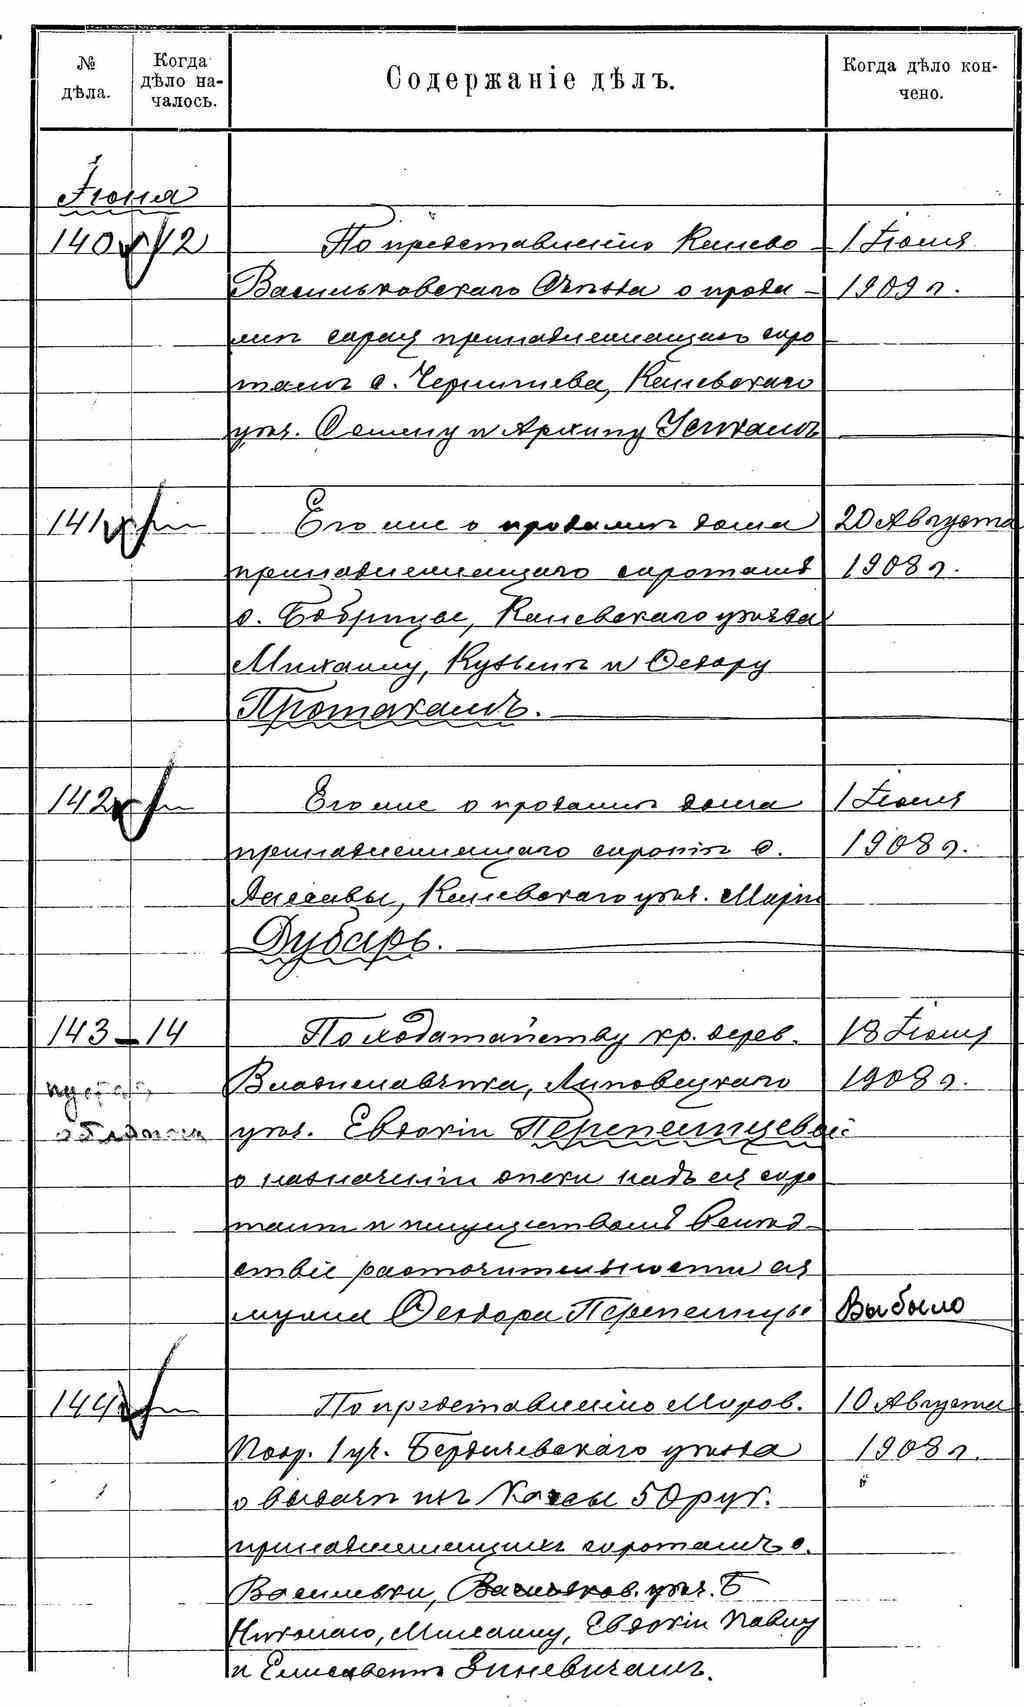 № дѣла.
Когда дѣло на-
чалось.
Содержаніе дѣлъ.
Когда дѣло кон-
чено.
Іюня
140 12 По представленію Канево - 1 Іюня
Васильковскаго Съѣзда о прода- 1909 г.
жѣ сарая принадлежащаго сиро
тамъ с. Чернышева, Каневскаго
уѣз. Семену и Архипу Усикамъ
141 Его же о продажѣ дома 20 Августа
принадлежащаго сиротамъ 1908 г.
с. Бобрицы, Каневскаго уѣзда
Михаилу, Кузьмѣ и Федору
Протакамъ.
142 Его же о продажѣ дома 1 Іюня
принадлежащаго сиротѣ с. 1908 г.
Каневскаго уѣз. Маріи
Дубарь.
143 - 14 По ходатайству кр. дерев. 18 Іюня
Владиславчика, Липовецкаго 1908 г.
пустая
обложка уѣз. Евдокіи Перепелицевой
о назначеніи опеки надъ ея сиро
тами и имуществомъ вслѣд-
ствіе расточительности ея
мужа Федора Перепелицы Выбыло
144 По представленію Миров. 10 Августа
Поср. 1 уч. Бердичевскаго уѣзда 1908 г.
о выдачѣ изъ Кассы 50 руб.
принадлежащихъ сиротамъ с.
Васильки, Васильков. уѣз. Б
Николаю, Михаилу, Евдокіи Павлу
и Елисаветѣ Зиневичамъ.